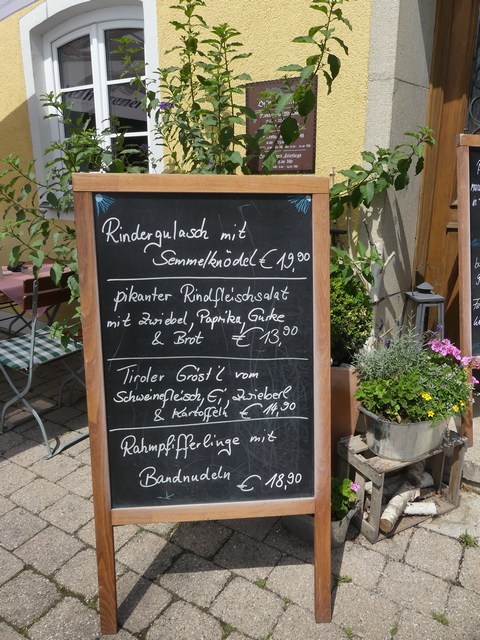 Rindergulasch mit
Semmelknödel € 19,90
pikanter Rindfleischsalat
mit Zwiebel, Paprika, Gurke
& Brot € 13,90
Tiroler Gröst'l vom
Schweinefleisch, Ei, Zwieberl
& Kartoffeln € 14,90
Rahmpfifferlinge mit
Bandnudeln € 18,90